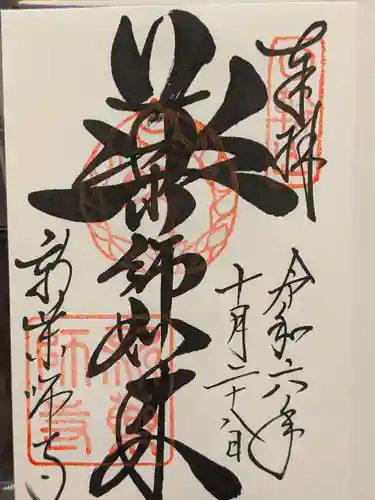 奉拝
令和六年
十月二十八日
薬師如来
新薬師寺
新薬
師寺